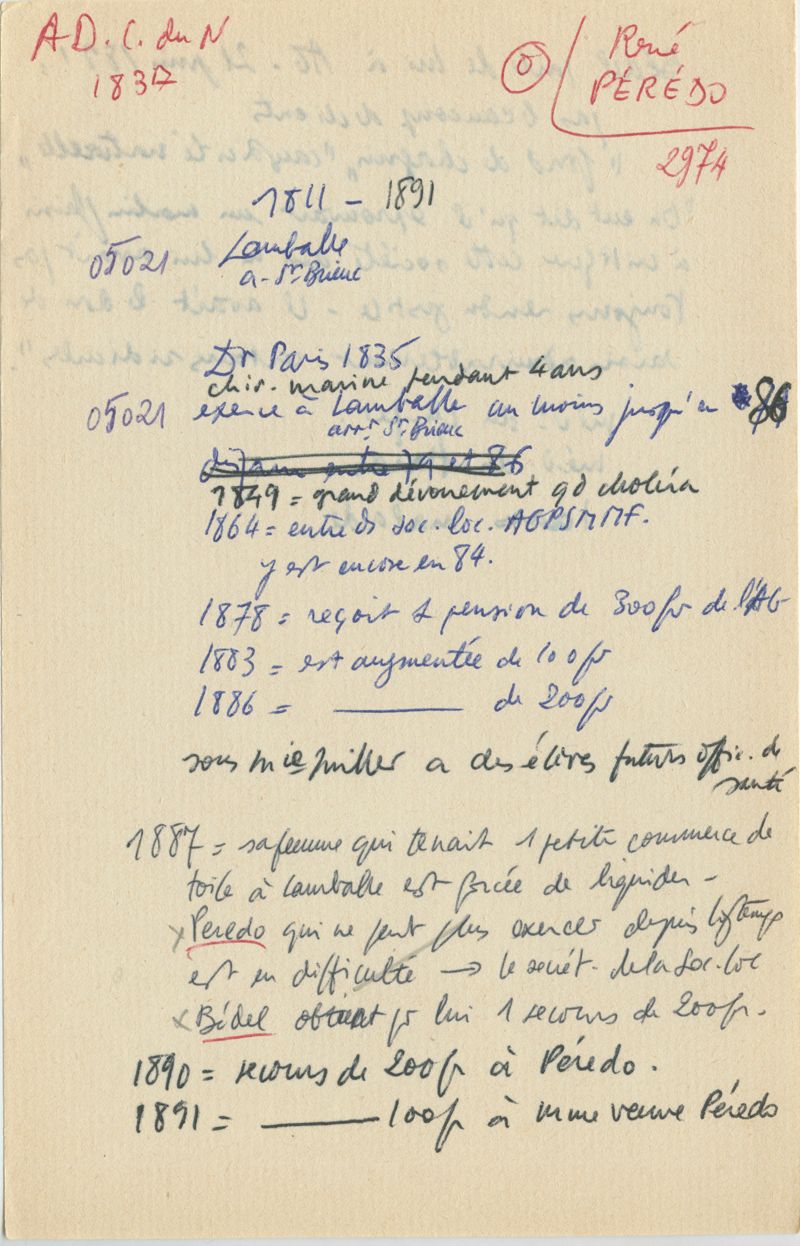 A D. C. du N
1837
O
René
PÉRÉDO
2974
1811 - 1891
05021 Lamballe
a - St Brieuc
Dr Paris 1835
chir. marine pendant 4 ans
05021 exerce à Lamballe au moins jusqu'en 86
arrt St Brieuc
entre 79 et 86
1849 = grand dévouement qd choléra
1864 = entre ds soc. loc. AGPSMMF.
y est encore en 84.
1878 = reçoit 1 pension de 300 fr de l'AG
1883 = est augmentée de 100 fr
1886 = ——— de 200 fr
sous mie Juillet a des élèves futurs offic. de
santé
1887 = sa femme qui tenait 1 petite commerce de
toile à Lamballe est forcée de liquider -
x Peredo qui ne peut plus exercer depuis lgtemps
est en difficulté → le secrét. de la Soc. loc
x Bédel obtient pr lui 1 secours de 200 fr.
1890 = secours de 200 fr à Pérédo.
1891 = ——— 100 fr à mme veuve Pérédo